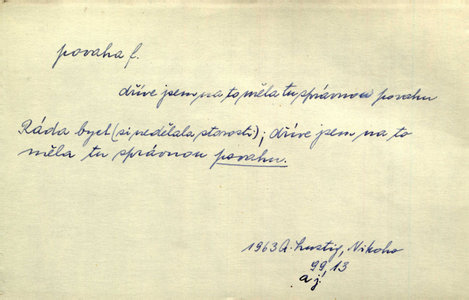 povaha f.
dříve jsem na to měla tu správnou povahu
Ráda bych (si nedělala starosti); dříve jsem na to
měla tu správnou povahu.
1963 A. Lustig, Nikoho
99, 13
a j.